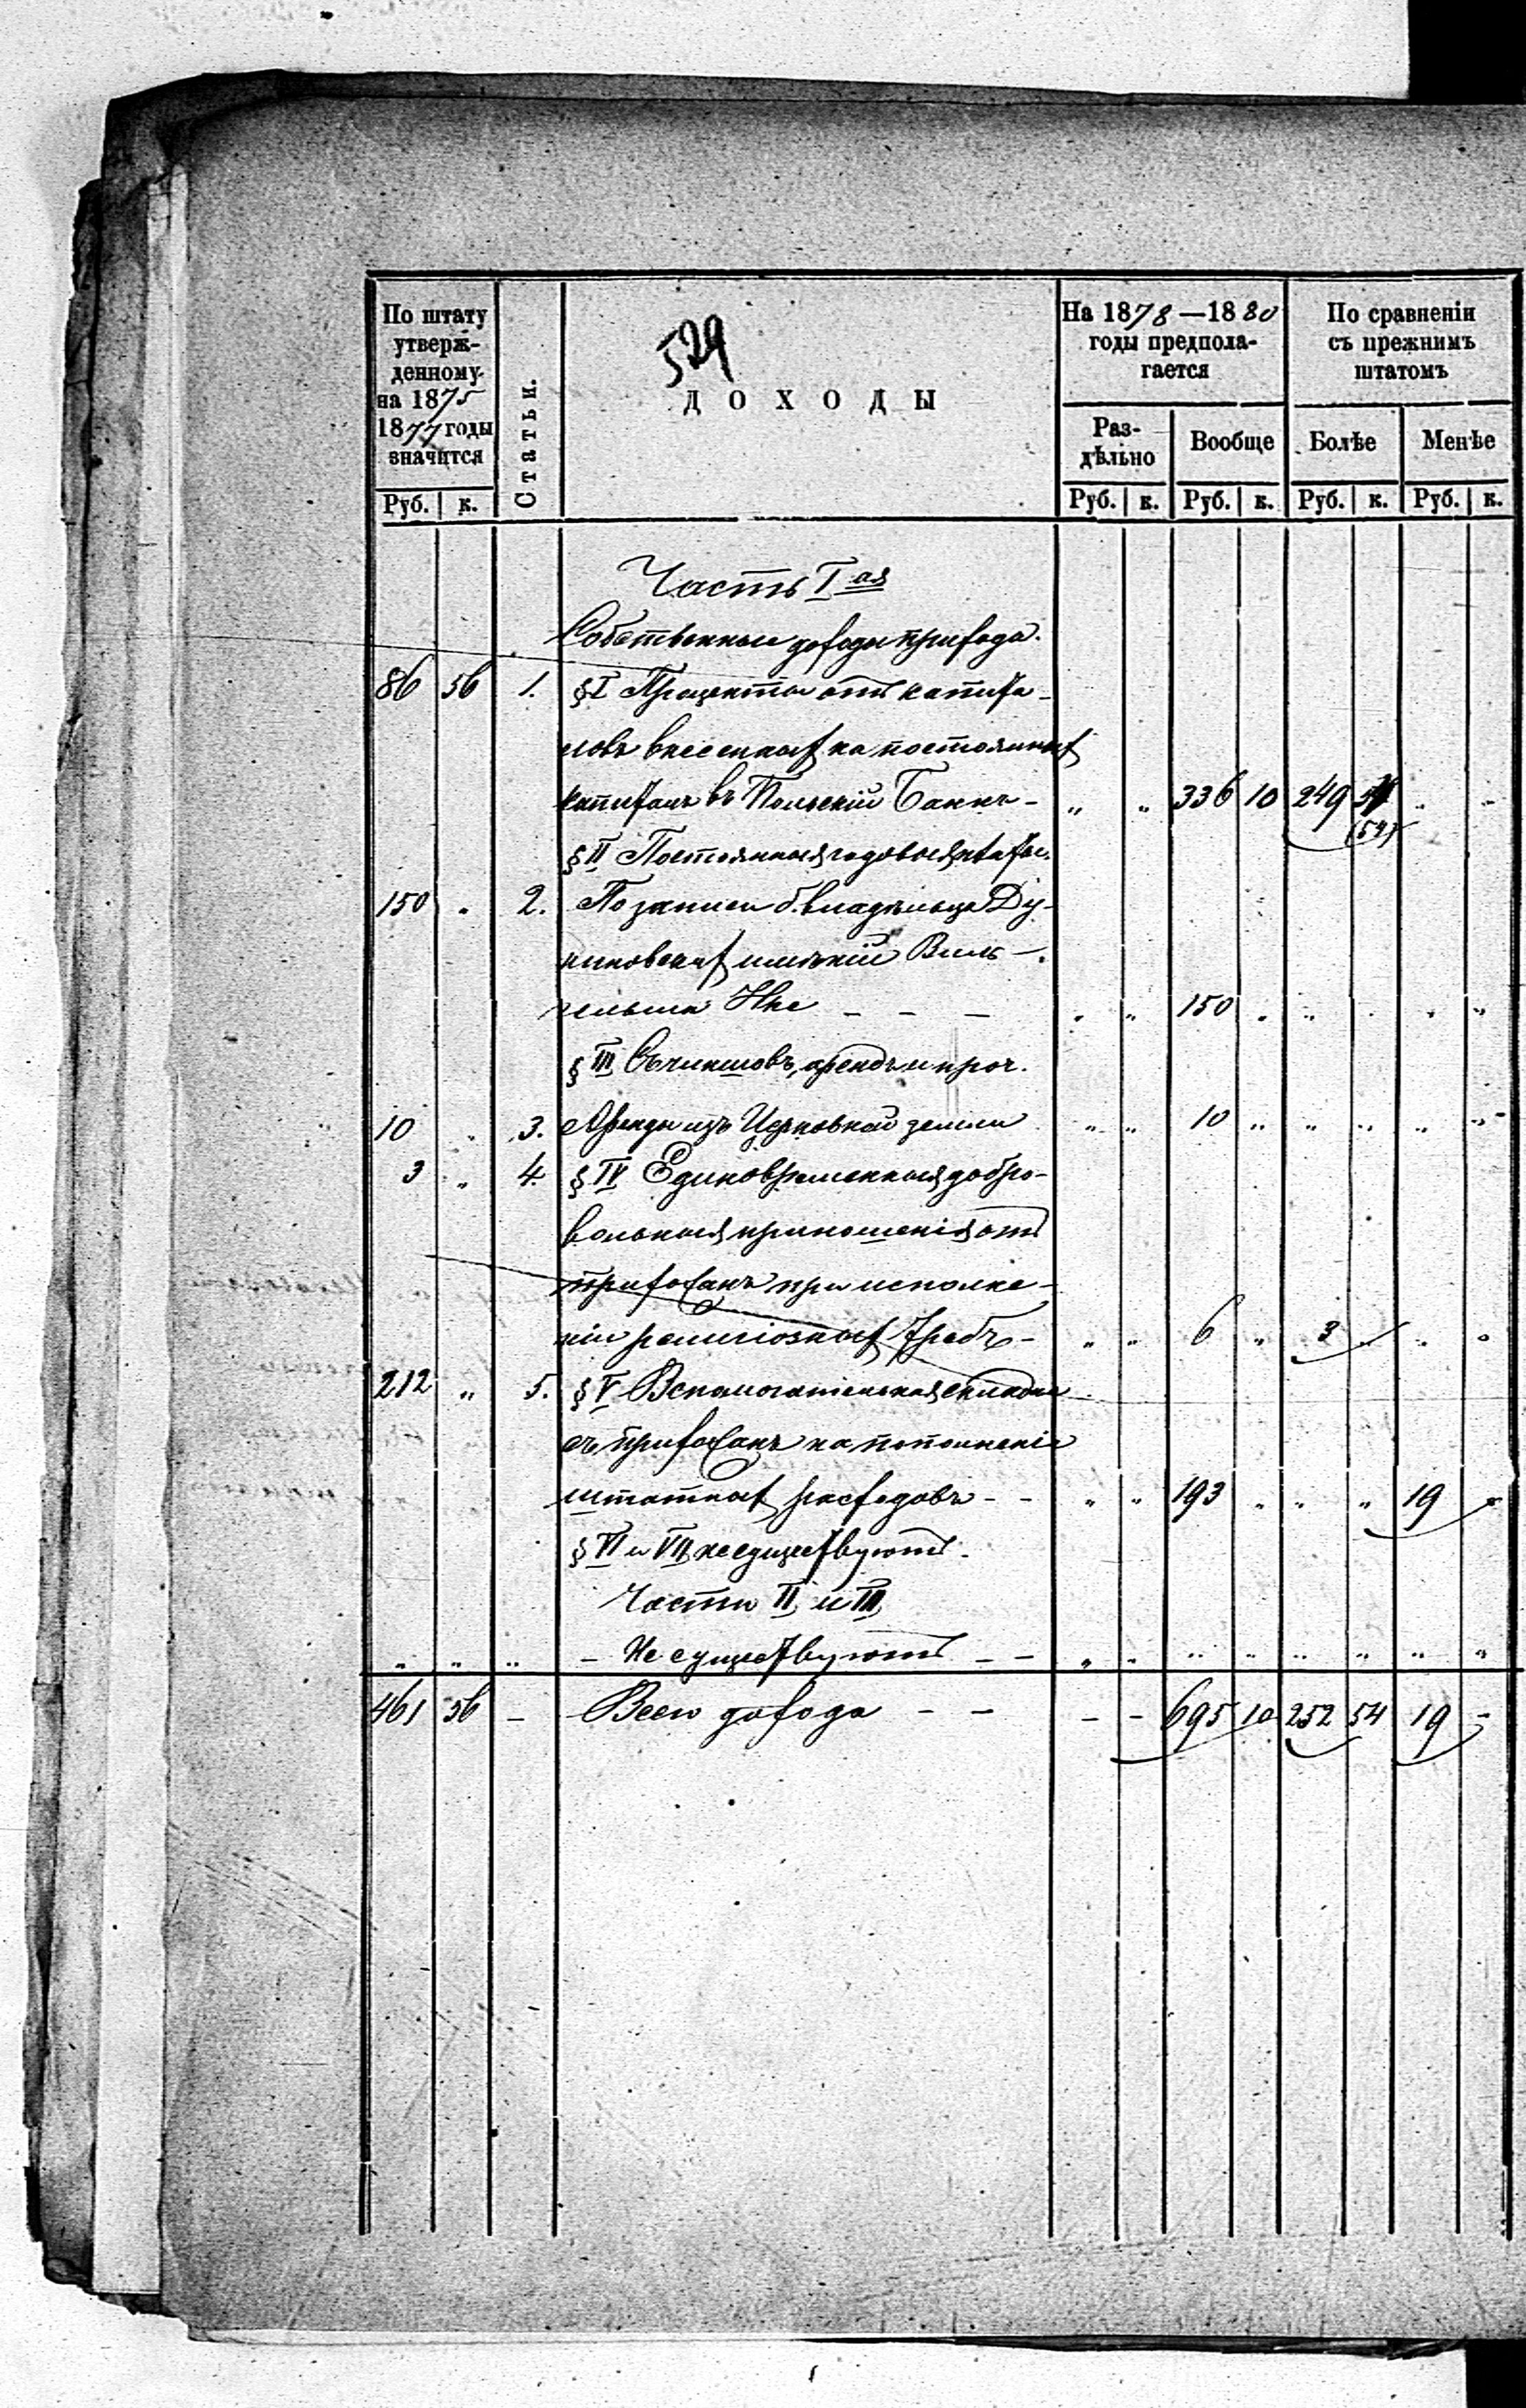 529
По штату
утверж-
денному
на 1875
1877 годы
значится
Руб. к.
Статьи.
ДОХОДЫ
На 1878—1880
годы предпола-
гается
Раз-
дѣльно
Вообще
Руб. к. Руб. к.
По сравненіи
съ прежнимъ
штатомъ
Болѣе Менѣе
Руб. к. Руб. к.
Часть Iая
Собственные доходы прихода.
86 56 1. § I Проценты отъ капита-
ловъ внесенных на постоянных
капиталъ въ Польскій Банкъ - „ „ 336 10 249 54 „ „
(54)
§ II Постоянныя годовыя платы.
150 „ 2. По записи б. владѣльца
имѣній Виль-
гельма - - - „ „ 150 „ „ „ „ „
§ III Съ чиншовъ, арендъ и проч.
10 „ 3. Аренды изъ Церковной земли „ „ 10 „ „ „ „ „
3 „ 4. § IV Единовременныя добро-
вольныя приношенія отъ
прихожанъ при исполне-
ніи религіозных требъ - „ „ 6 „ 3 „ „ „
212 „ 5. § V Вспомогательная складка
съ прихожанъ на пополненіе
штатных расходовъ - - „ „ 193 „ „ „ 19 „
§ VI и VII не существуютъ.
Части II и III
„ „ „ - Не существуютъ - - „ „ „ „ „ „ „ „
461 56 - Всего дохода - - - - 695 10 252 54 19 -